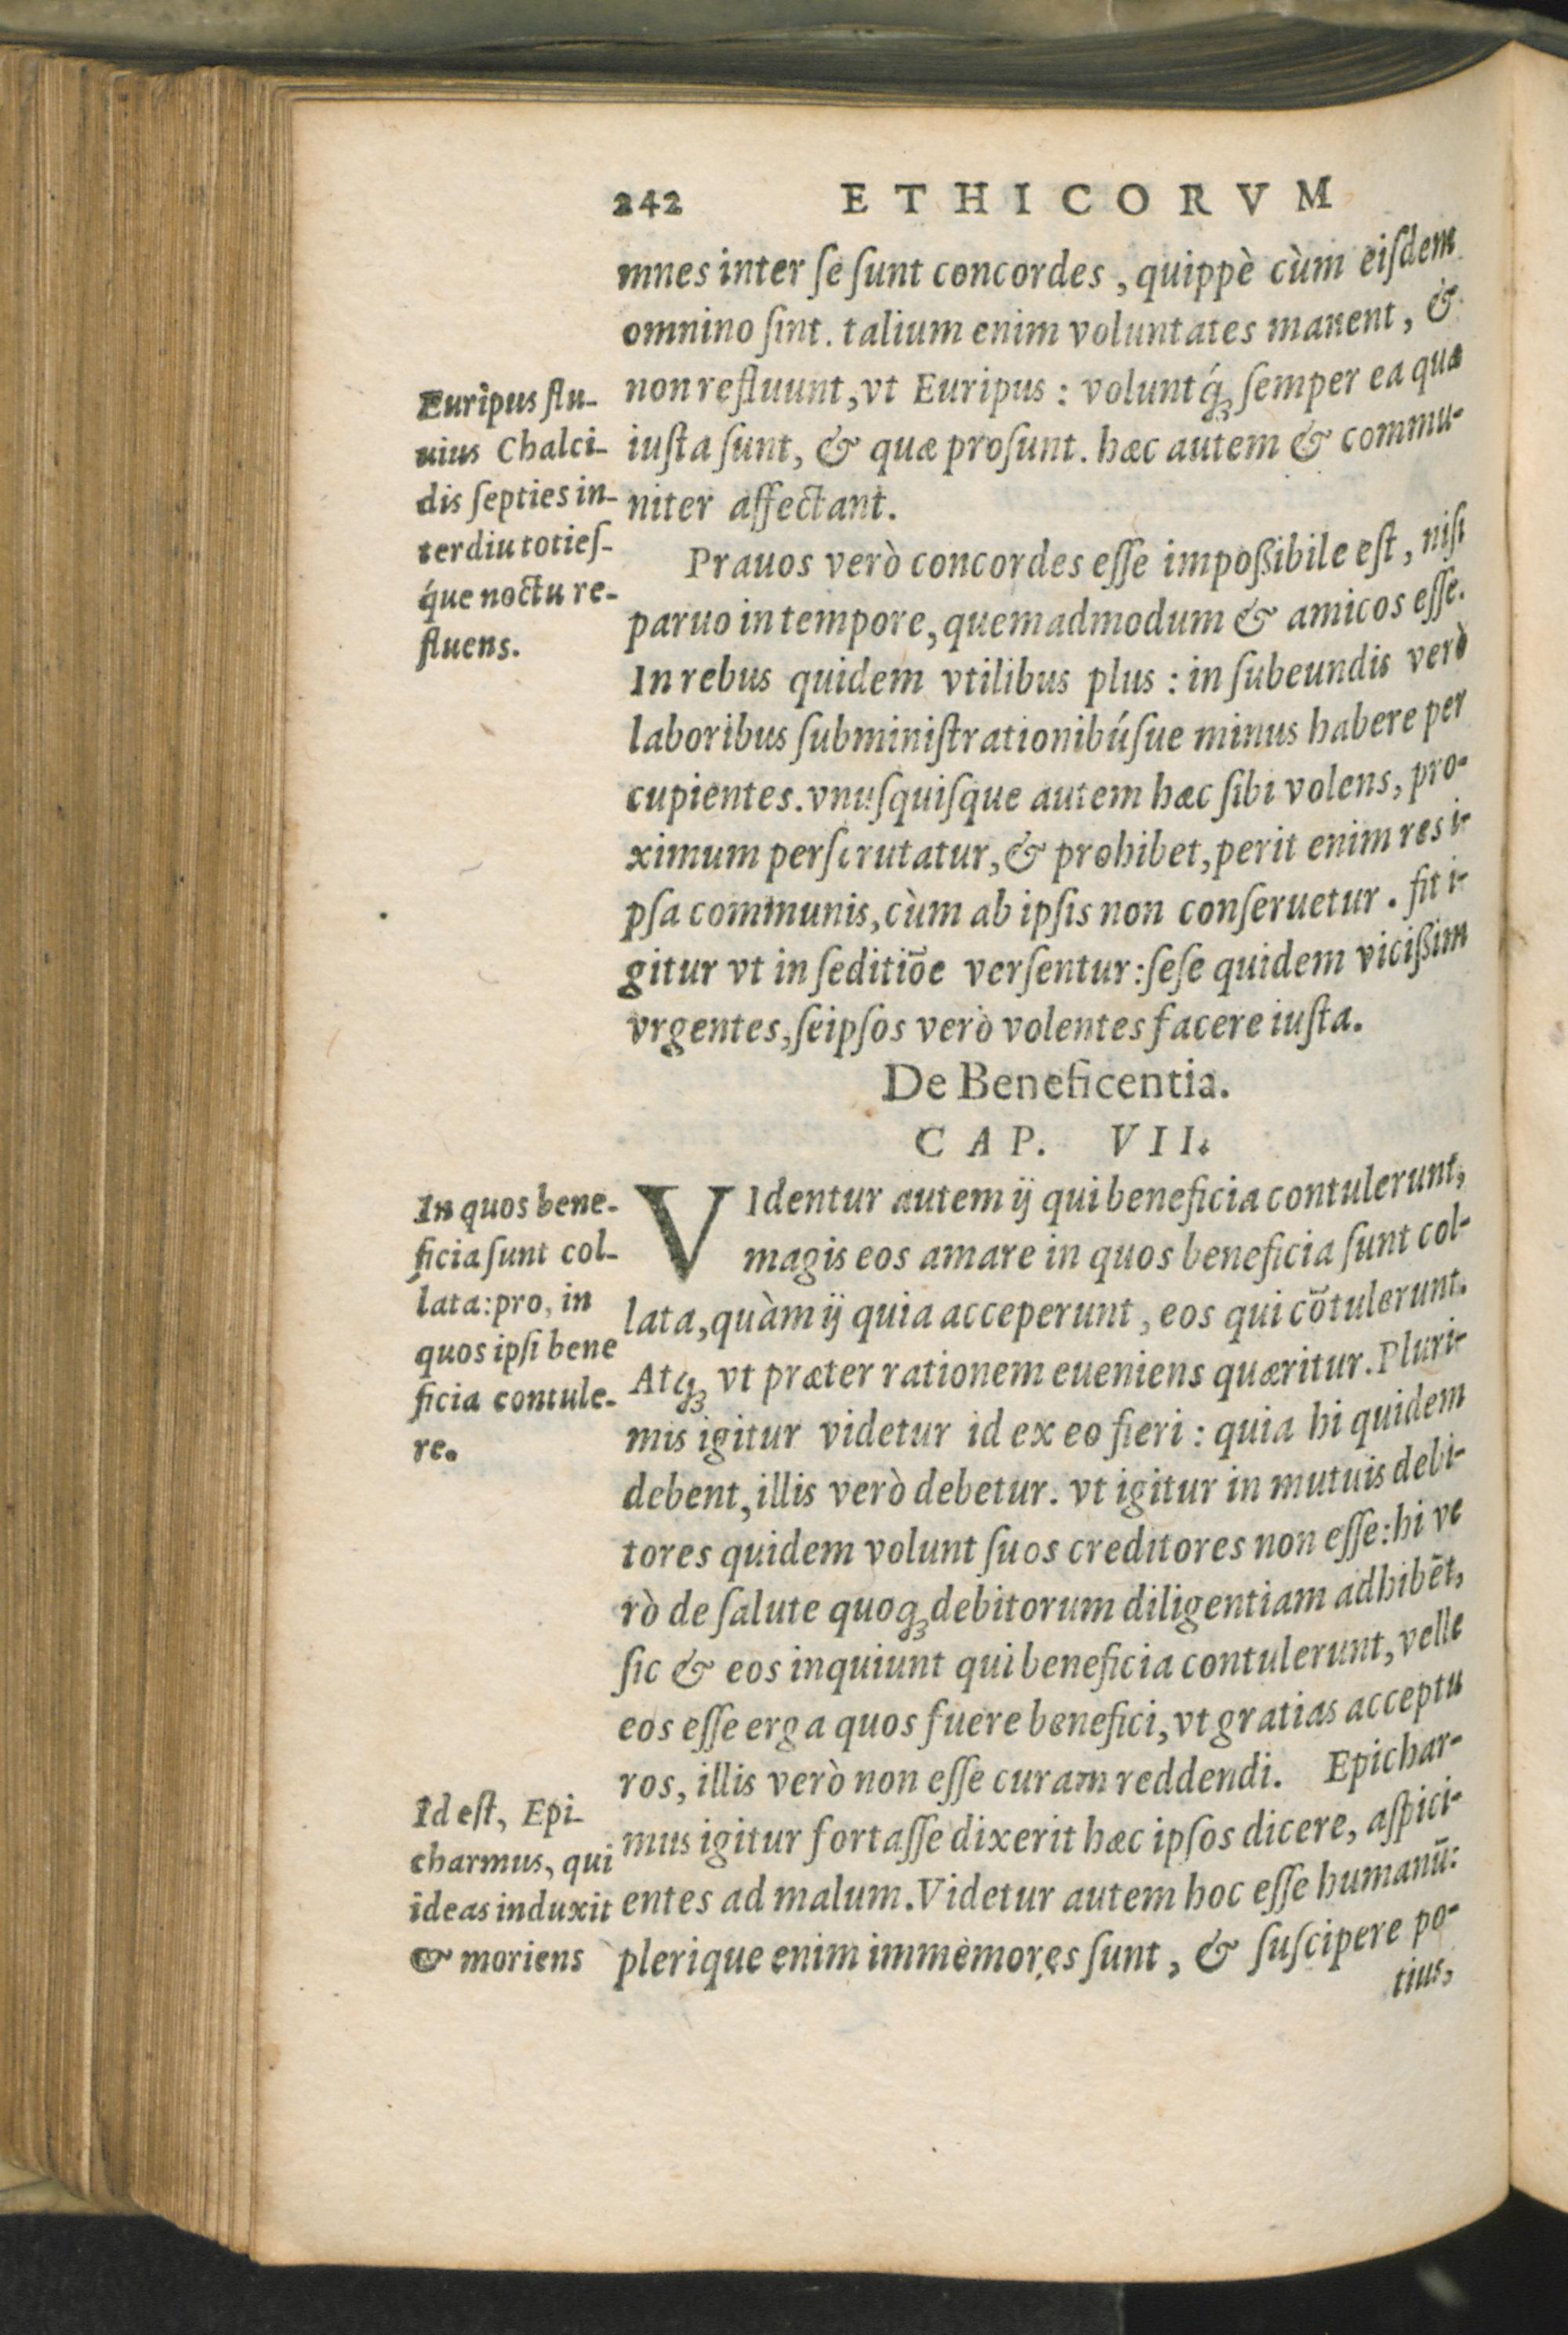 242 ETHICORVM
mnes inter ſe ſunt concordes, quippè cùm eiſdem
omnino ſint. talium enim voluntates manent, &
non refluunt, vt Euripus : voluntq́ꝫ ſemper ea quæ
iuſta ſunt, & quæ proſunt. hæc autem & commu-
niter affectant.
Prauos verò concordes eſſe impoßibile eſt, niſi
paruo in tempore, quemadmodum & amicos eſſe.
In rebus quidem vtilibus plus : in ſubeundis verò
laboribus ſubminiſtrationibúſue minus habere per
cupientes. vnuſquiſque autem hæc ſibi volens, pro-
ximum perſcrutatur, & prohibet, perit enim res i-
pſa communis, cùm ab ipſis non conſeruetur. fit i-
gitur vt in ſeditiōe verſentur: ſeſe quidem vicißim
vrgentes, ſeipſos verò volentes facere iuſta.
De Beneficentia.
CAP. VII.
VIdentur autem ij qui beneficia contulerunt,
magis eos amare in quos beneficia ſunt col-
lata, quàm ij quia acceperunt, eos qui cōtulerunt.
Atqꝫ vt præter rationem eueniens quæritur. Pluri-
mis igitur videtur id ex eo fieri : quia hi quidem
debent, illis verò debetur. vt igitur in mutuis debi-
tores quidem volunt ſuos creditores non eſſe: hi ve
rò de ſalute quoqꝫ debitorum diligentiam adhibēt,
ſic & eos inquiunt qui beneficia contulerunt, velle
eos eſſe erga quos fuere benefici, vt gratias acceptu
ros, illis verò non eſſe curam reddendi. Epichar-
mus igitur fortaſſe dixerit hæc ipſos dicere, aſpici-
entes ad malum. Videtur autem hoc eſſe humanū:
plerique enim immemores ſunt, & ſuſcipere po-
tius,
Euripus flu-
uius Chalci-
dis ſepties in-
terdiu totieſ-
q́ue noctu re-
fluens.
In quos bene-
ficia ſunt col-
lata: pro, in
quos ipſi bene
ficia contule-
re.
Id eſt, Epi-
charmus, qui
ideas induxit
& moriens